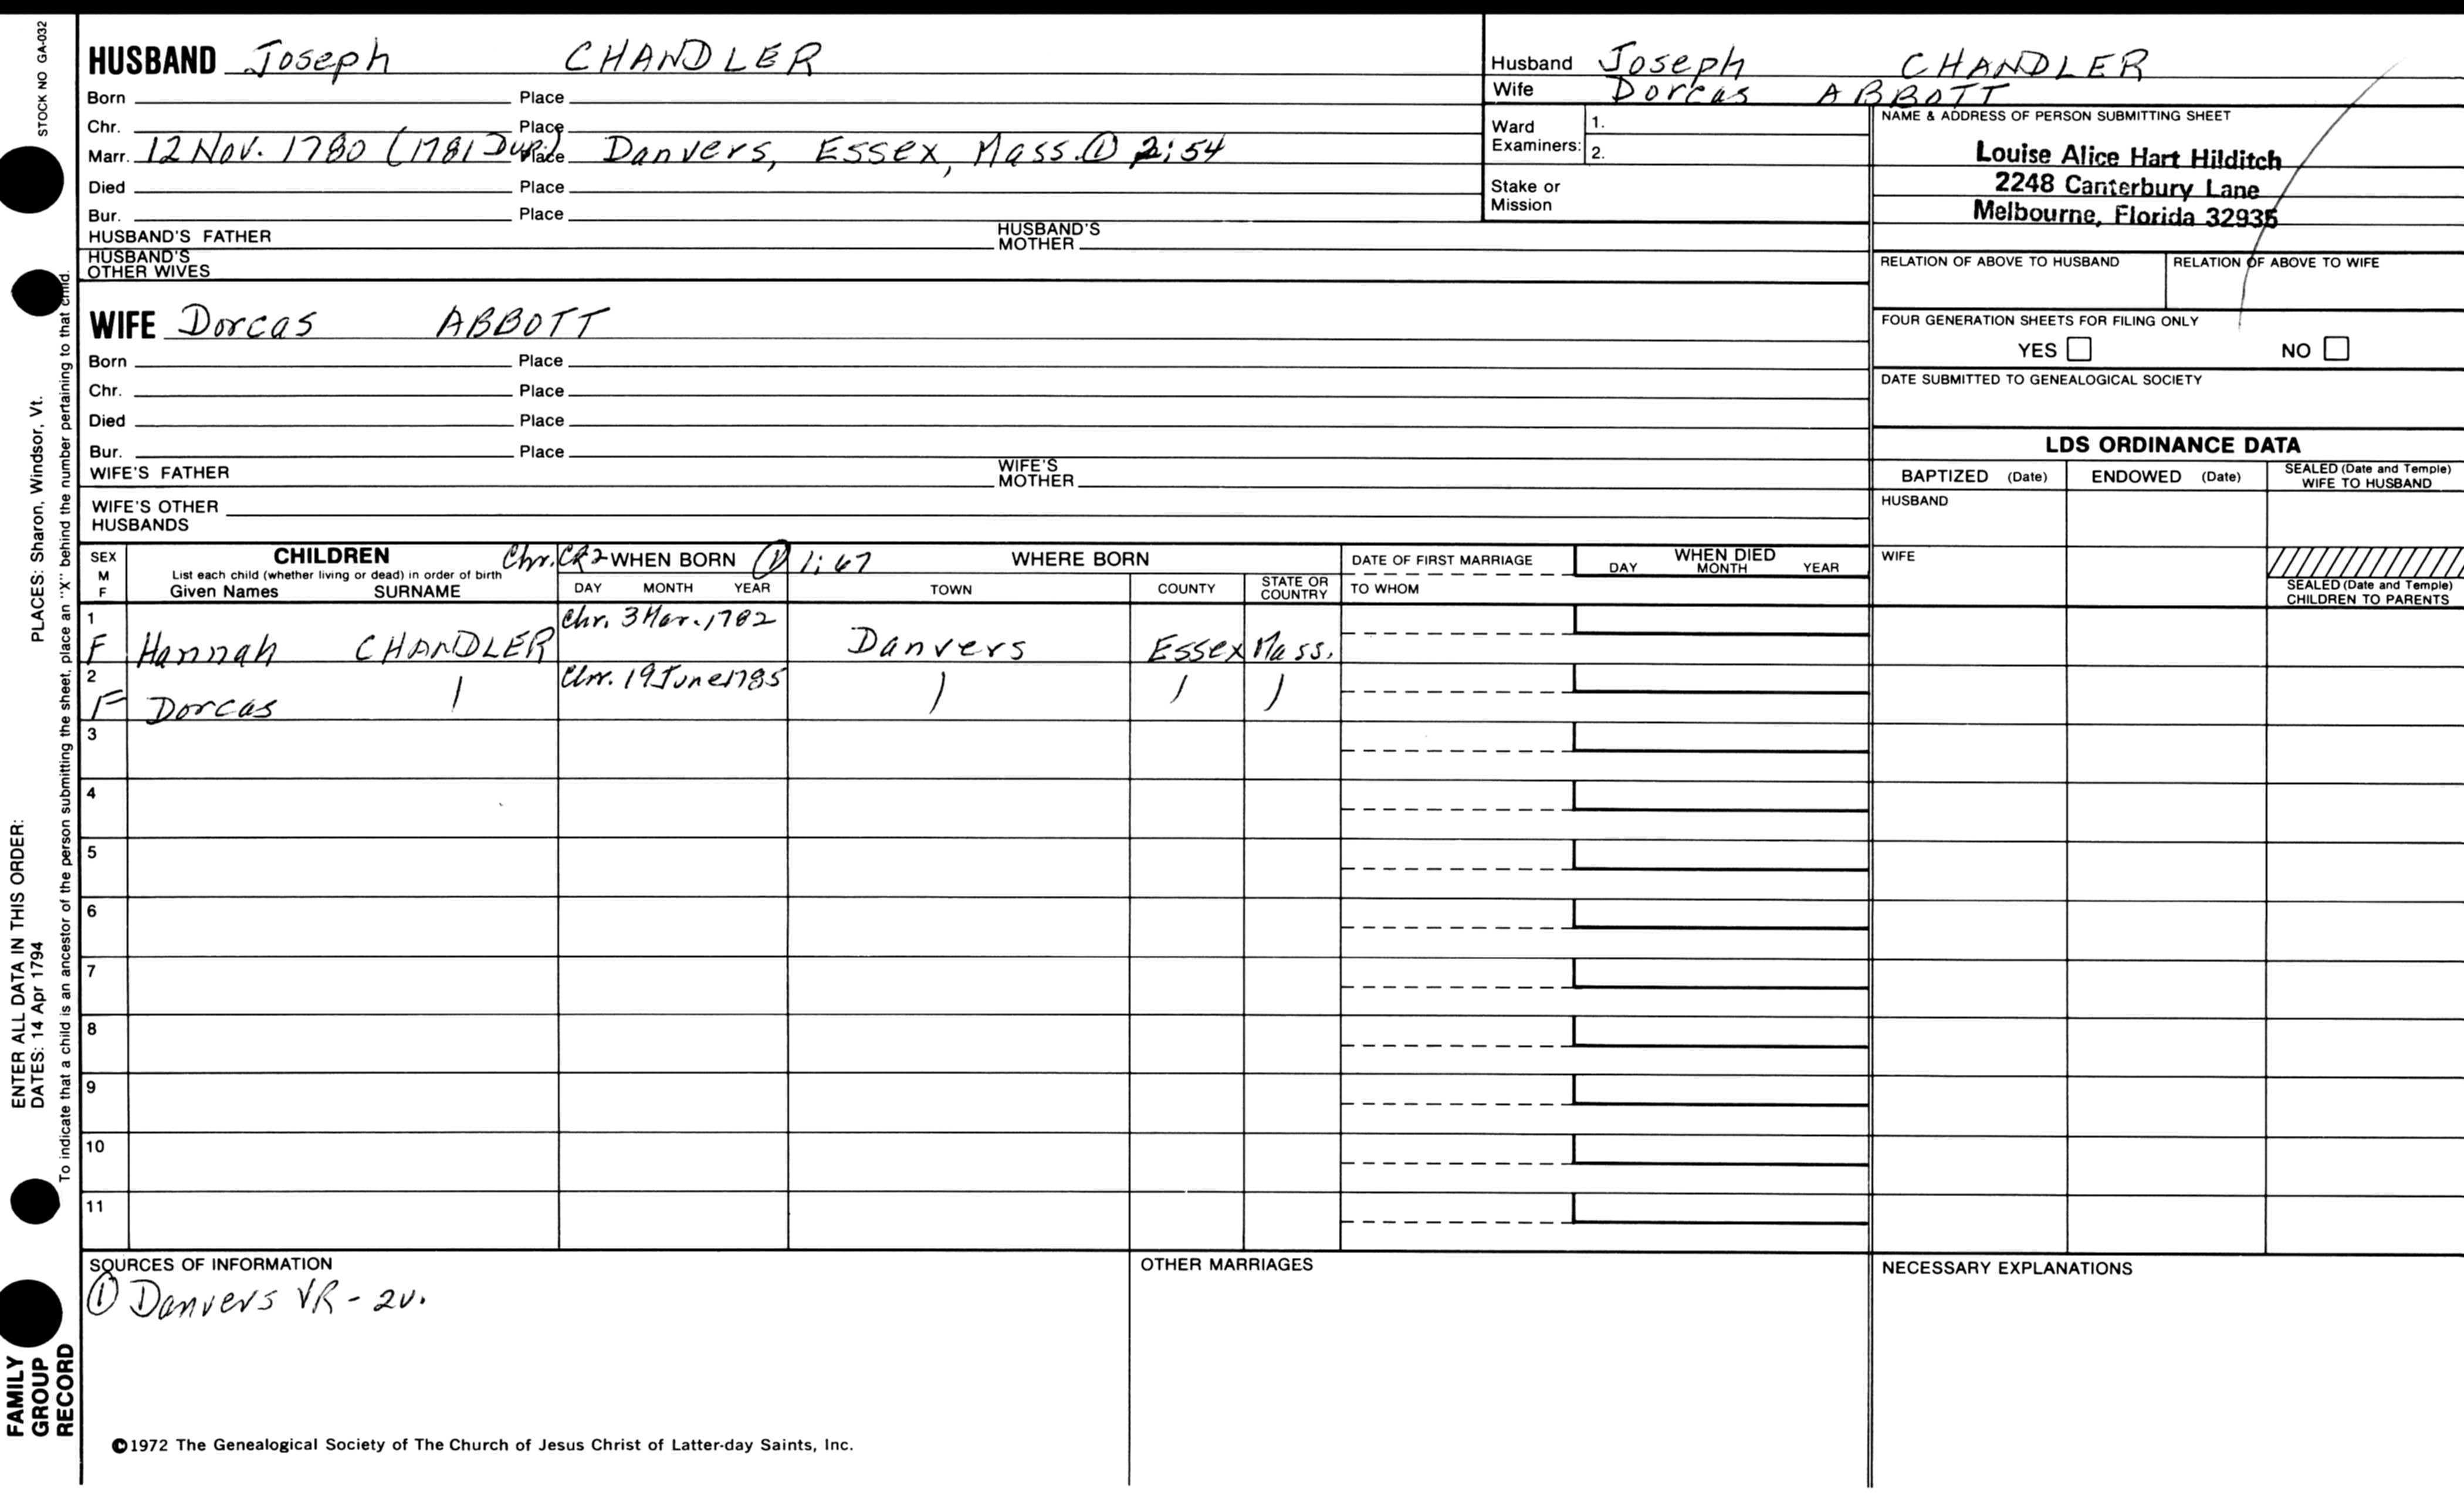 STOCK NO GA-032
HUSBAND Joseph CHANDLER
Born Place
Chr. Place
Marr. 12 Nov. 1780 (1781 Dup.) Place Danvers, Essex, Mass. ① 2:54
Died Place
Bur. Place
HUSBAND'S FATHER HUSBAND'S MOTHER
HUSBAND'S OTHER WIVES
WIFE Dorcas ABBOTT
Born Place
Chr. Place
Died Place
Bur. Place
WIFE'S FATHER WIFE'S MOTHER
WIFE'S OTHER HUSBANDS
Husband Joseph CHANDLER
Wife Dorcas ABBOTT
Ward Examiners: 1.
2.
Stake or Mission
NAME & ADDRESS OF PERSON SUBMITTING SHEET
Louise Alice Hart Hilditch
2248 Canterbury Lane
Melbourne, Florida 32935
RELATION OF ABOVE TO HUSBAND RELATION OF ABOVE TO WIFE
FOUR GENERATION SHEETS FOR FILING ONLY
YES NO
DATE SUBMITTED TO GENEALOGICAL SOCIETY
LDS ORDINANCE DATA
BAPTIZED (Date) ENDOWED (Date) SEALED (Date and Temple) WIFE TO HUSBAND
HUSBAND
WIFE
SEALED (Date and Temple) CHILDREN TO PARENTS
SEX M F
CHILDREN Chr. CR2 WHEN BORN ① 1:67 WHERE BORN DATE OF FIRST MARRIAGE WHEN DIED
List each child (whether living or dead) in order of birth
Given Names SURNAME DAY MONTH YEAR TOWN COUNTY STATE OR COUNTRY TO WHOM DAY MONTH YEAR
1 F Hannah CHANDLER Chr. 3 Mar. 1782 Danvers Essex Mass.
2 F Dorcas Chr. 19 June 1785
3
4
5
6
7
8
9
10
11
SOURCES OF INFORMATION
① Danvers VR - 2v.
OTHER MARRIAGES
NECESSARY EXPLANATIONS
©1972 The Genealogical Society of The Church of Jesus Christ of Latter-day Saints, Inc.
ENTER ALL DATA IN THIS ORDER:
DATES: 14 Apr 1794 PLACES: Sharon, Windsor, Vt.
To indicate that a child is an ancestor of the person submitting the sheet, place an "X" behind the number pertaining to that child.
FAMILY
GROUP
RECORD